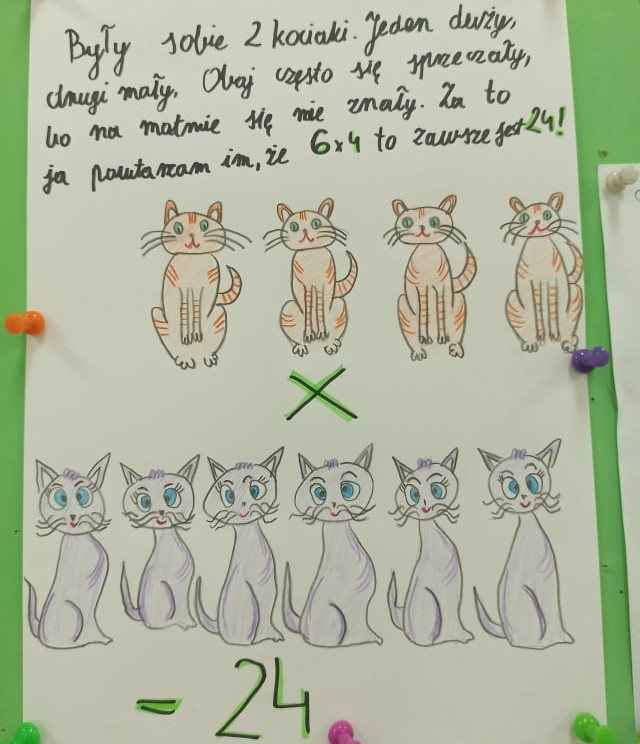 Były sobie 2 kociaki. Jeden duży,
drugi mały. Obaj często się sprzeczały,
bo na matmie się nie znały. Za to
ja powtarzam im, że 6x4 to zawsze jest 24!
X
- 24